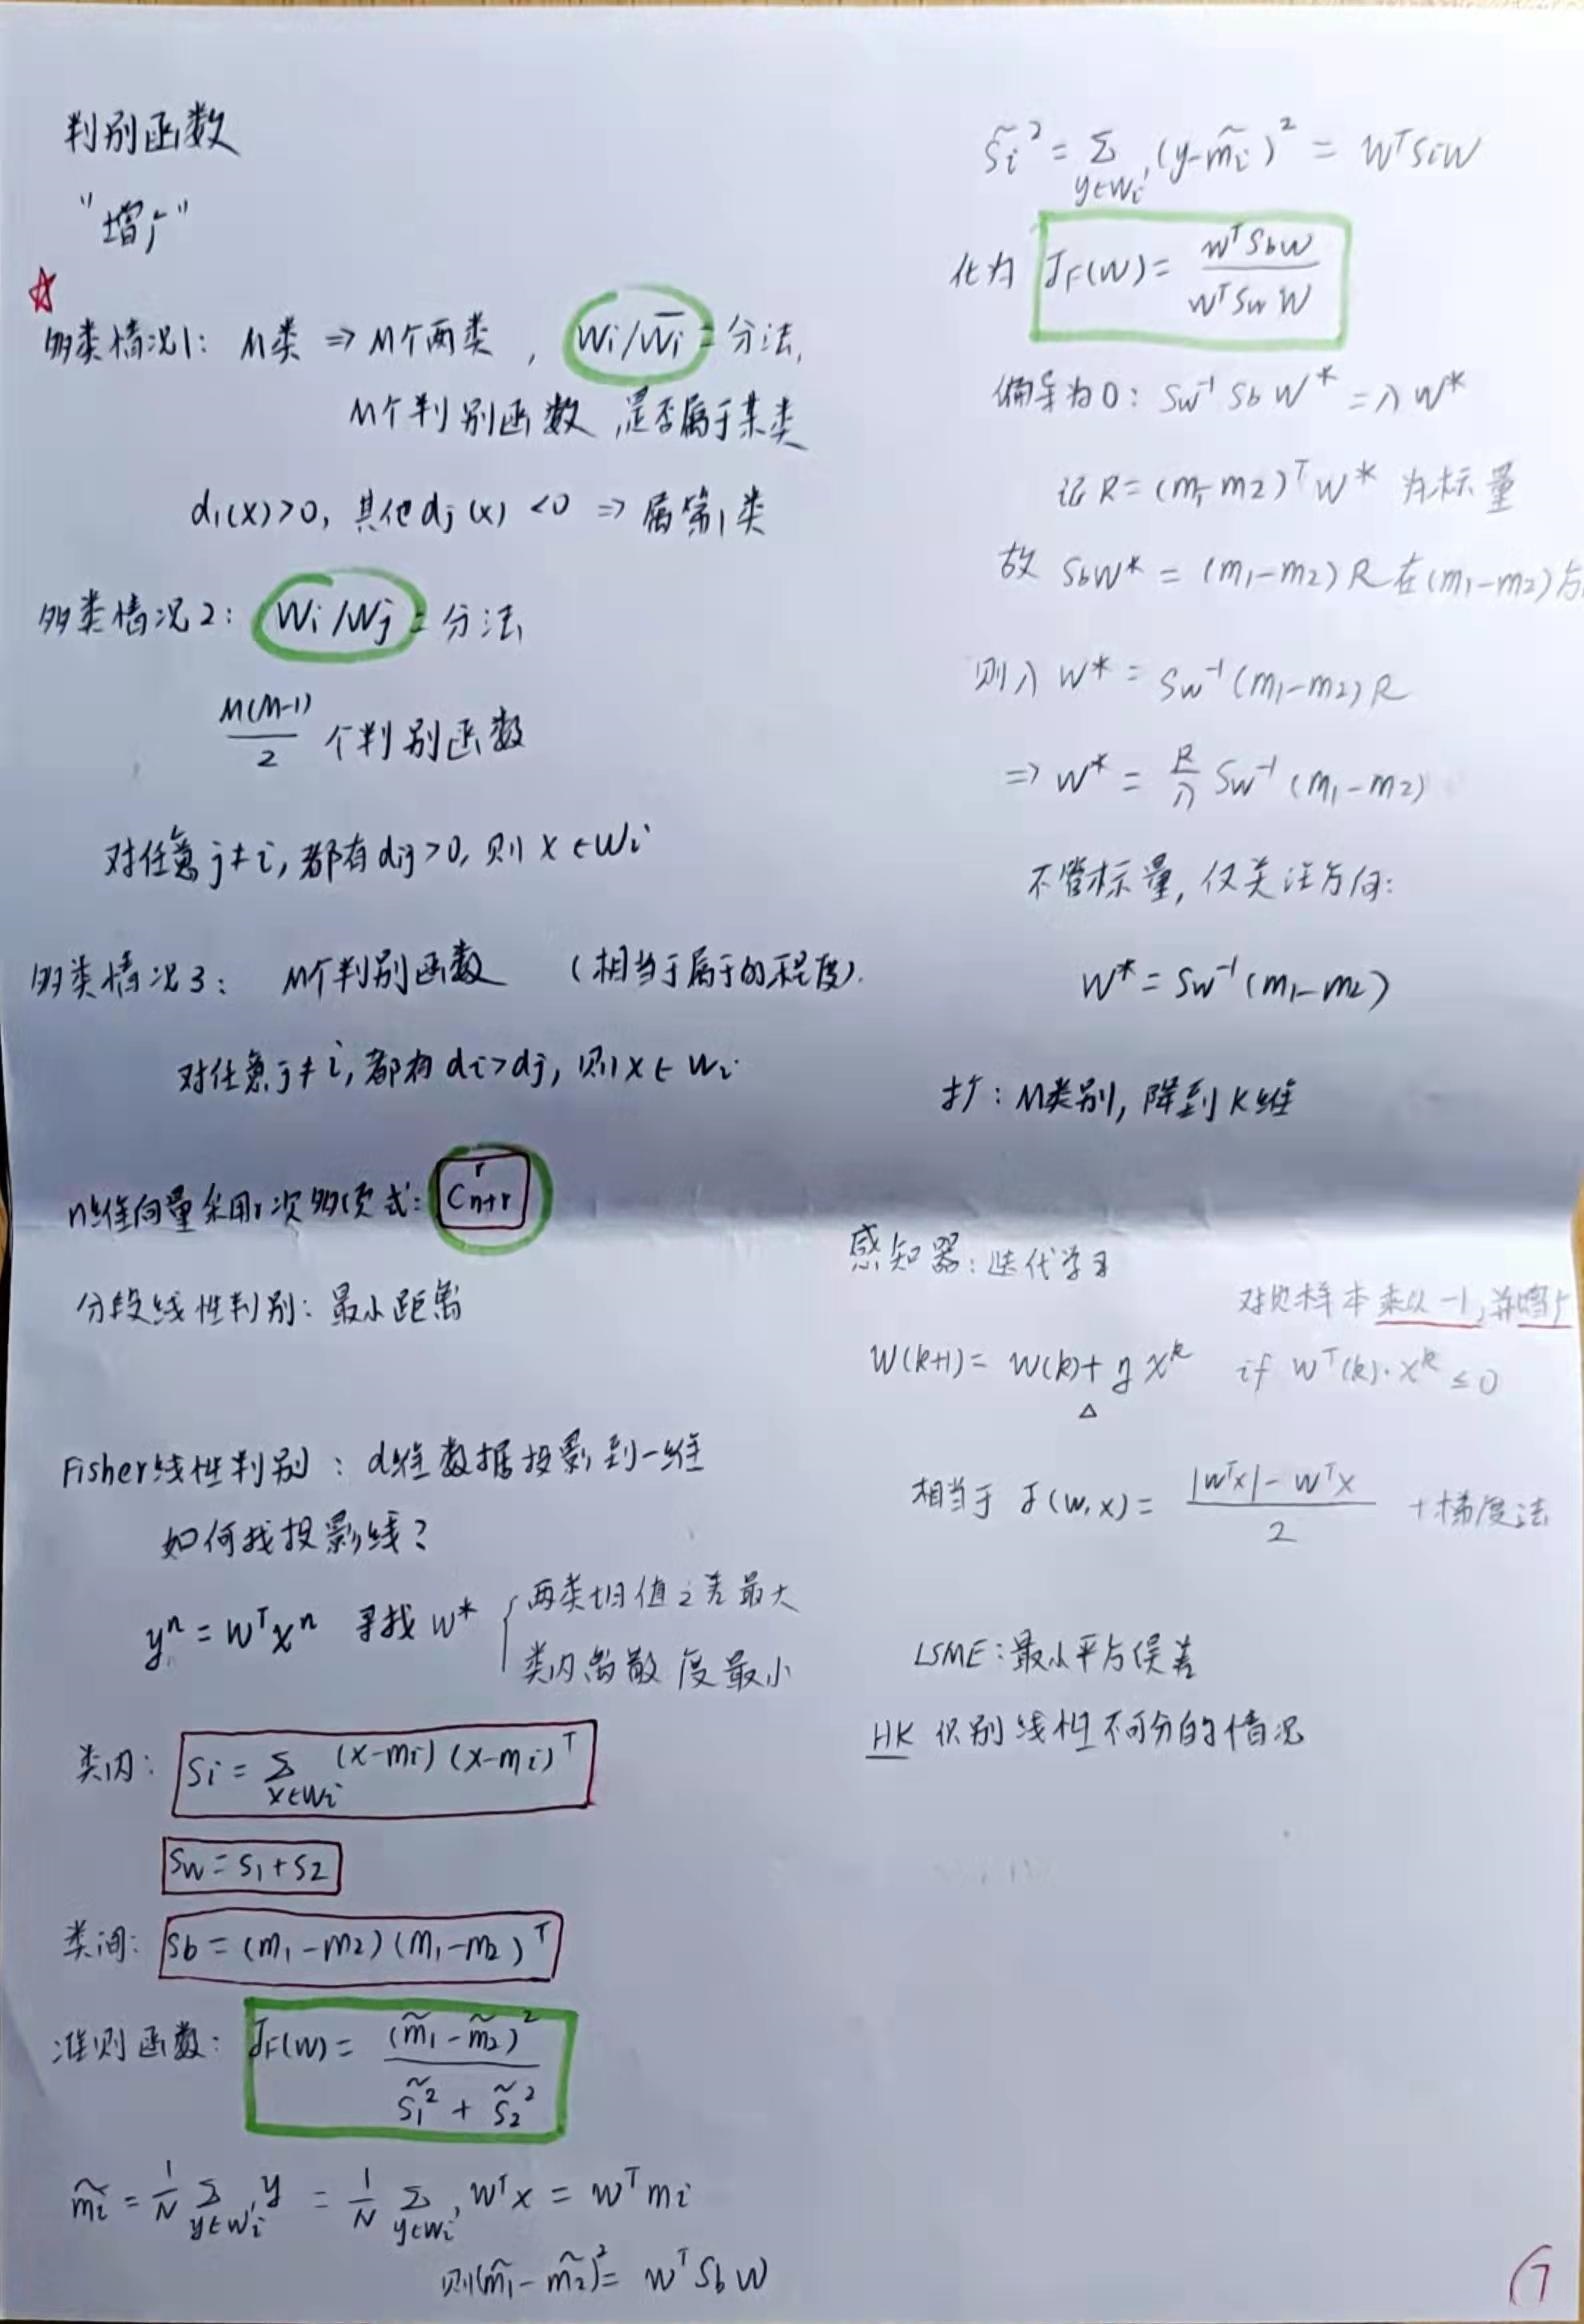 判别函数
"增广"
多类情况1: M类 ⇒ M个两类, Wi/W̅i̅ 二分法,
M个判别函数,是否属于某类
d₁(x)>0, 其他dj(x)<0 ⇒ 属第1类
多类情况2: Wi/Wj 二分法
M(M-1)/2 个判别函数
对任意j≠i, 都有dij>0, 则 x∈Wi
多类情况3: M个判别函数 (相当于属于的程度).
对任意j≠i, 都有di>dj, 则x∈Wi
n维向量采用r次多项式: C_{n+r}^r
分段线性判别: 最小距离
Fisher线性判别: d维数据投影到一维
如何找投影线?
yⁿ = Wᵀxⁿ 寻找 W* { 两类均值之差最大
类内离散度最小
类内: Si = Σ_{x∈Wi} (x-mi)(x-mi)ᵀ
Sw = S₁+S₂
类间: Sb = (m₁-m₂)(m₁-m₂)ᵀ
准则函数: J_F(W) = (m̃₁-m̃₂)² / (S̃₁² + S̃₂²)
m̃i = 1/N Σ_{y∈Wi'} y = 1/N Σ_{y∈Wi'} Wᵀx = Wᵀmi
则(m̃₁-m̃₂)² = WᵀSbW
S̃i² = Σ_{y∈Wi'} (y-m̃i)² = WᵀSiW
化为 J_F(W) = WᵀSbW / WᵀSwW
偏导为0: Sw⁻¹SbW* = λW*
记R=(m₁-m₂)ᵀW* 为标量
故 SbW* = (m₁-m₂)R 在(m₁-m₂)方
则λW* = Sw⁻¹(m₁-m₂)R
⇒ W* = R/λ Sw⁻¹(m₁-m₂)
不管标量, 仅关注方向:
W* = Sw⁻¹(m₁-m₂)
扩: M类别, 降到K维
感知器: 迭代学习
对负样本乘以-1,并增广
W(k+1) = W(k)+ηxᵏ if Wᵀ(k)·xᵏ ≤0
△
相当于 J(W,x) = (|Wᵀx| - Wᵀx) / 2 +梯度法
LSME: 最小平方误差
HK 识别线性不可分的情况
7